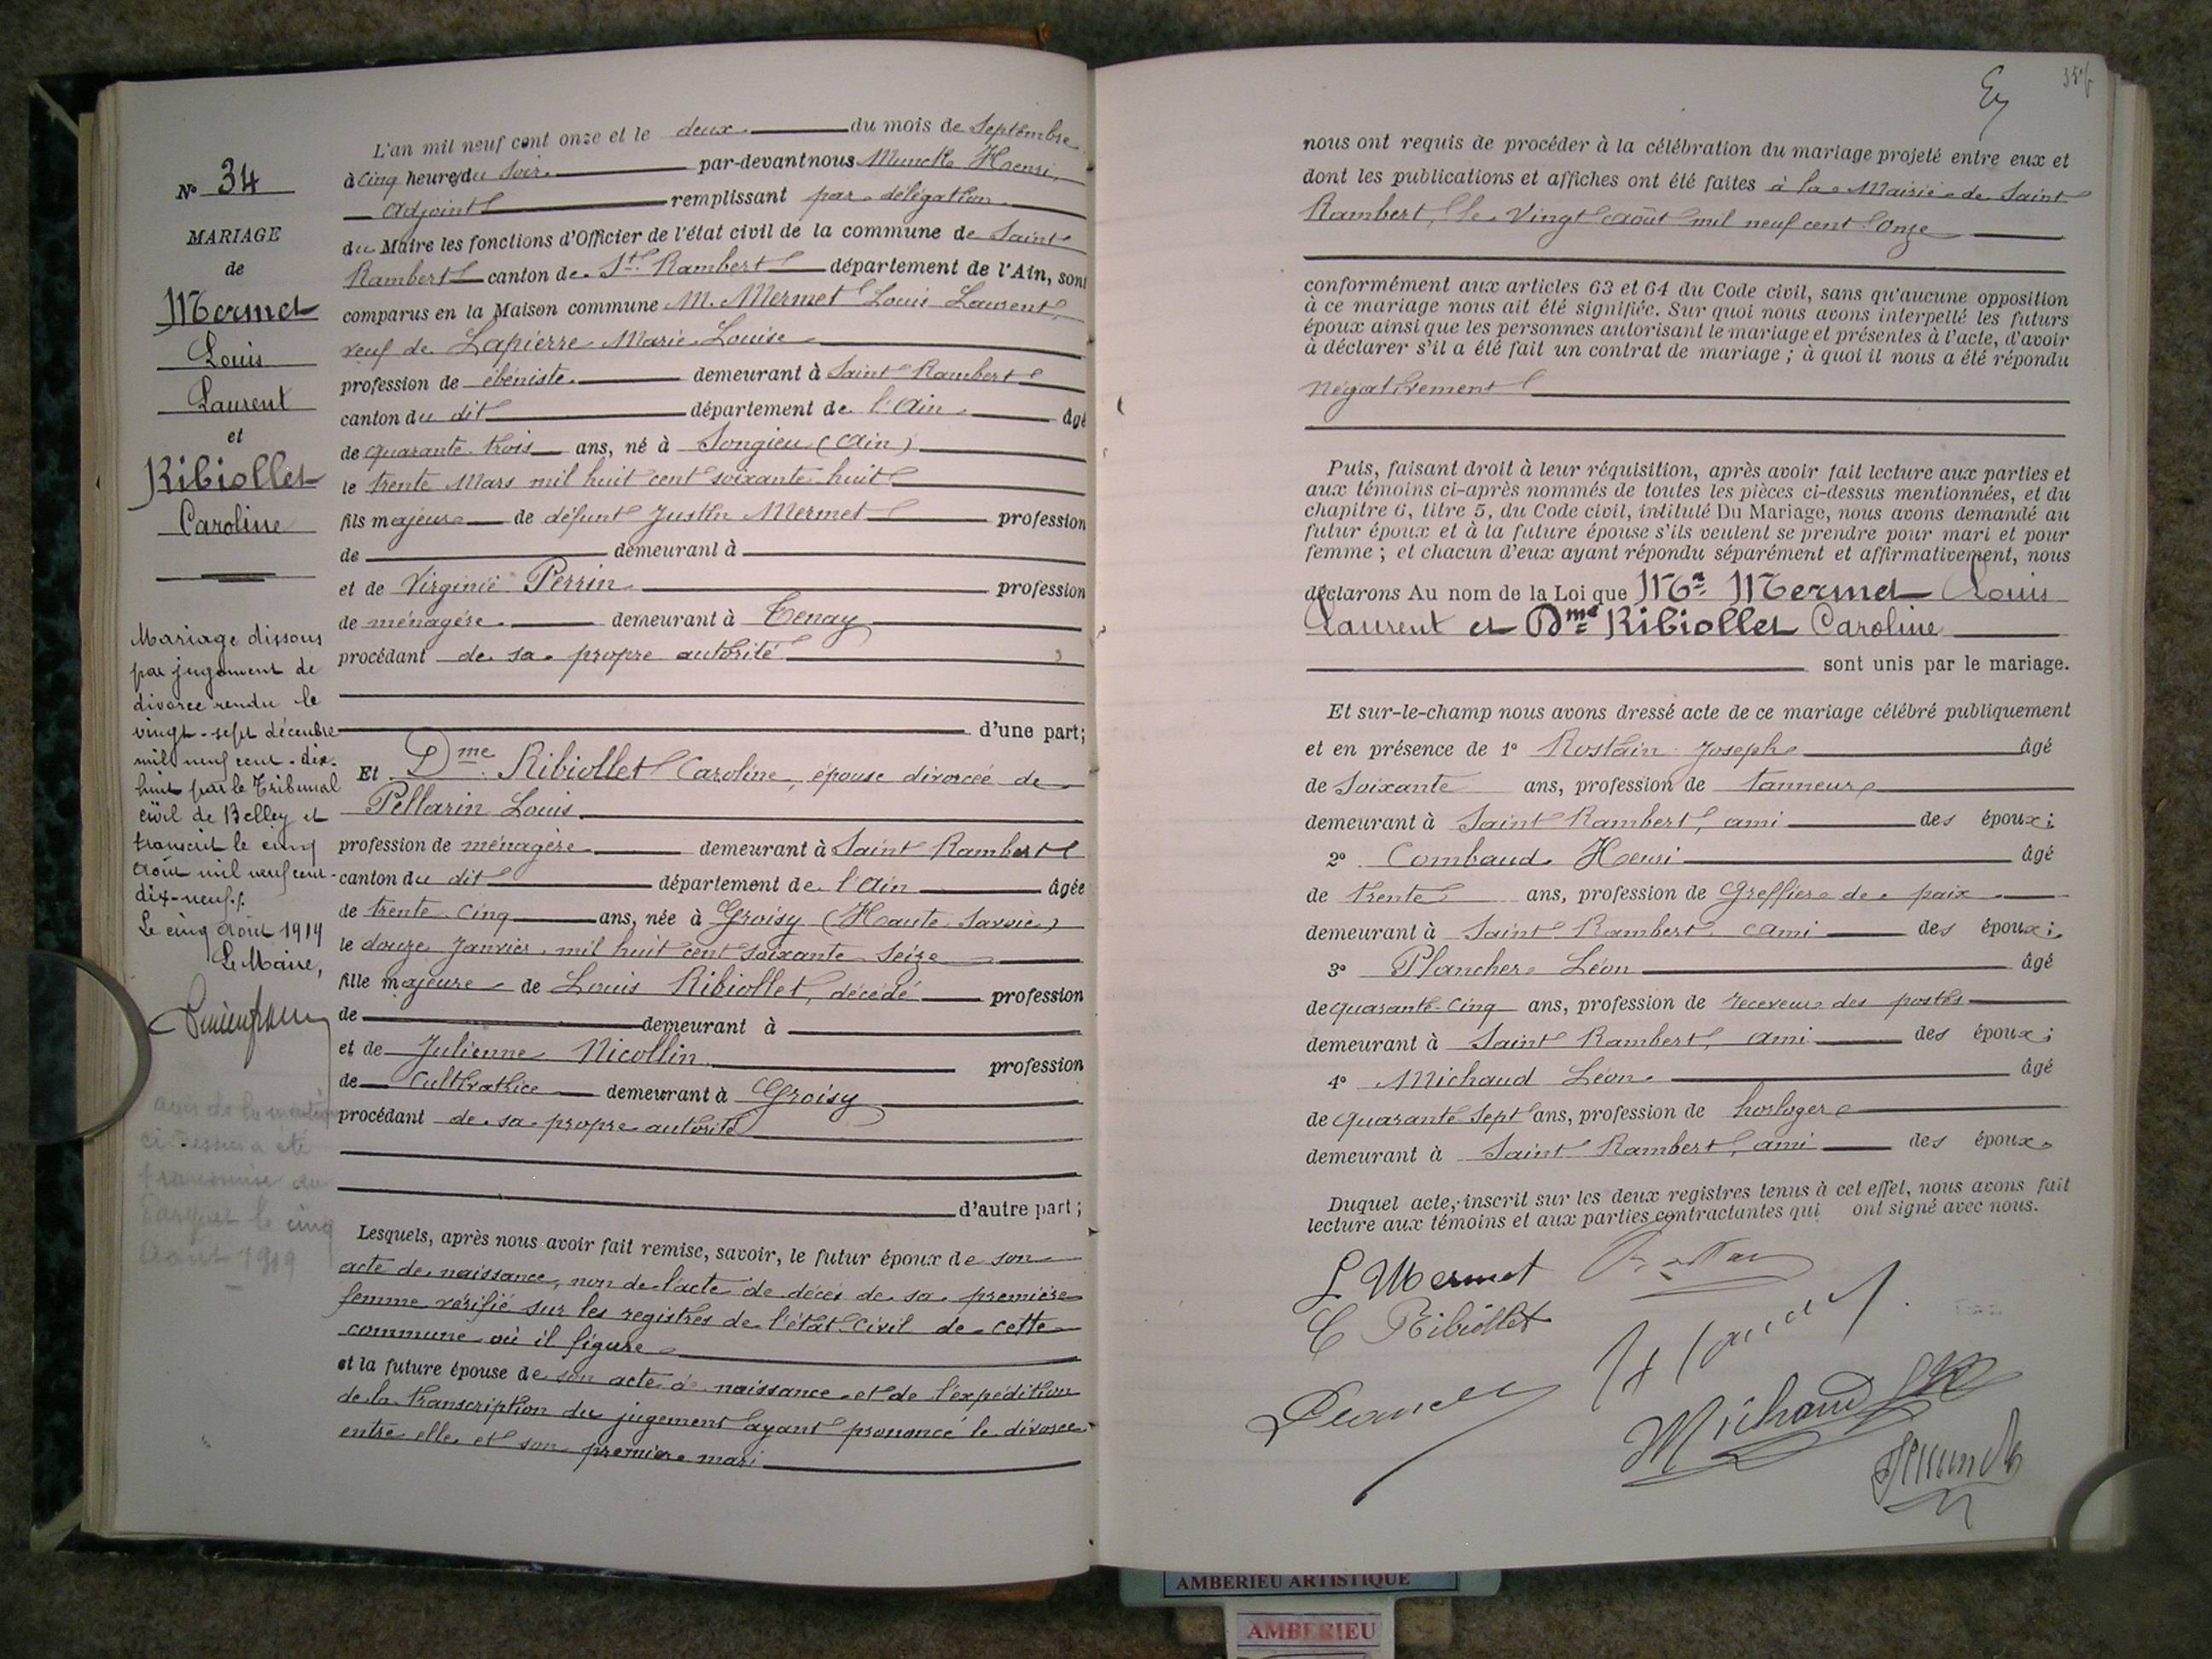 N° 34
MARIAGE
de
Mermet
Louis
Laurent
et
Ribiollet
Caroline
Mariage dissous
par jugement de
divorce rendu le
vingt-sept décembre
mil neuf cent-dix-
huit par le Tribunal
civil de Belley et
transcrit le cinq
Août mil neuf cent-
dix-neuf./.
Le cinq Août 1919
Le Maire,
avis de la mention
ci-dessus a été
transmise au
Parquet le cinq
Août 1919
L'an mil neuf cent onze et le deux du mois de Septembre
à cinq heures du soir par-devant nous Munck Henri,
Adjoint remplissant par délégation
du Maire les fonctions d'Officier de l'état civil de la commune de Saint
Rambert canton de St Rambert département de l'Ain, sont
comparus en la Maison commune M. Mermet Louis Laurent,
veuf de Lapierre Marie Louise
profession de ébéniste demeurant à Saint Rambert
canton du dit département de l'Ain âgé
de quarante trois ans, né à Songieu (Ain)
le trente Mars mil huit cent soixante huit
fils majeur de défunt Justin Mermet profession
de demeurant à
et de Virginie Perrin profession
de ménagère demeurant à Tenay
procédant de sa propre autorité
d'une part;
Et Dme Ribiollet Caroline, épouse divorcée de
Pellarin Louis
profession de ménagère demeurant à Saint Rambert
canton du dit département de l'Ain âgée
de trente cinq ans, née à Groisy (Haute Savoie)
le douze Janvier mil huit cent soixante seize
fille majeure de Louis Ribiollet, décédé profession
de demeurant à
et de Julienne Nicollin profession
de cultivatrice demeurant à Groisy
procédant de sa propre autorité
d'autre part;
Lesquels, après nous avoir fait remise, savoir, le futur époux de son
acte de naissance, non de l'acte de décès de sa première
femme vérifié sur les registres de l'état civil de cette
commune où il figure
et la future épouse de son acte de naissance et de l'expédition
de la transcription du jugement ayant prononcé le divorce
entre elle et son premier mari
nous ont requis de procéder à la célébration du mariage projeté entre eux et
dont les publications et affiches ont été faites à la Mairie de Saint
Rambert, le vingt août mil neuf cent onze
conformément aux articles 63 et 64 du Code civil, sans qu'aucune opposition
à ce mariage nous ait été signifiée. Sur quoi nous avons interpellé les futurs
époux ainsi que les personnes autorisant le mariage et présentes à l'acte, d'avoir
à déclarer s'il a été fait un contrat de mariage; à quoi il nous a été répondu
négativement
Puis, faisant droit à leur réquisition, après avoir fait lecture aux parties et
aux témoins ci-après nommés de toutes les pièces ci-dessus mentionnées, et du
chapitre 6, titre 5, du Code civil, intitulé Du Mariage, nous avons demandé au
futur époux et à la future épouse s'ils veulent se prendre pour mari et pour
femme; et chacun d'eux ayant répondu séparément et affirmativement, nous
déclarons Au nom de la Loi que Mr Mermet Louis
Laurent et Dme Ribiollet Caroline
sont unis par le mariage.
Et sur-le-champ nous avons dressé acte de ce mariage célébré publiquement
et en présence de 1° Rostain Joseph âgé
de Soixante ans, profession de tanneur
demeurant à Saint Rambert, ami des époux;
2° Combaud Henri âgé
de trente ans, profession de Greffier de paix
demeurant à Saint Rambert ami des époux;
3° Plancher Léon âgé
de quarante-cinq ans, profession de receveur des postes
demeurant à Saint Rambert, ami des époux;
4° Michaud Léon âgé
de quarante sept ans, profession de horloger
demeurant à Saint Rambert, ami des époux.
Duquel acte, inscrit sur les deux registres tenus à cet effet, nous avons fait
lecture aux témoins et aux parties contractantes qui ont signé avec nous.
L Mermet
C Ribiollet
Michaud
HMunck
AMBERIEU ARTISTIQUE
AMBERIEU